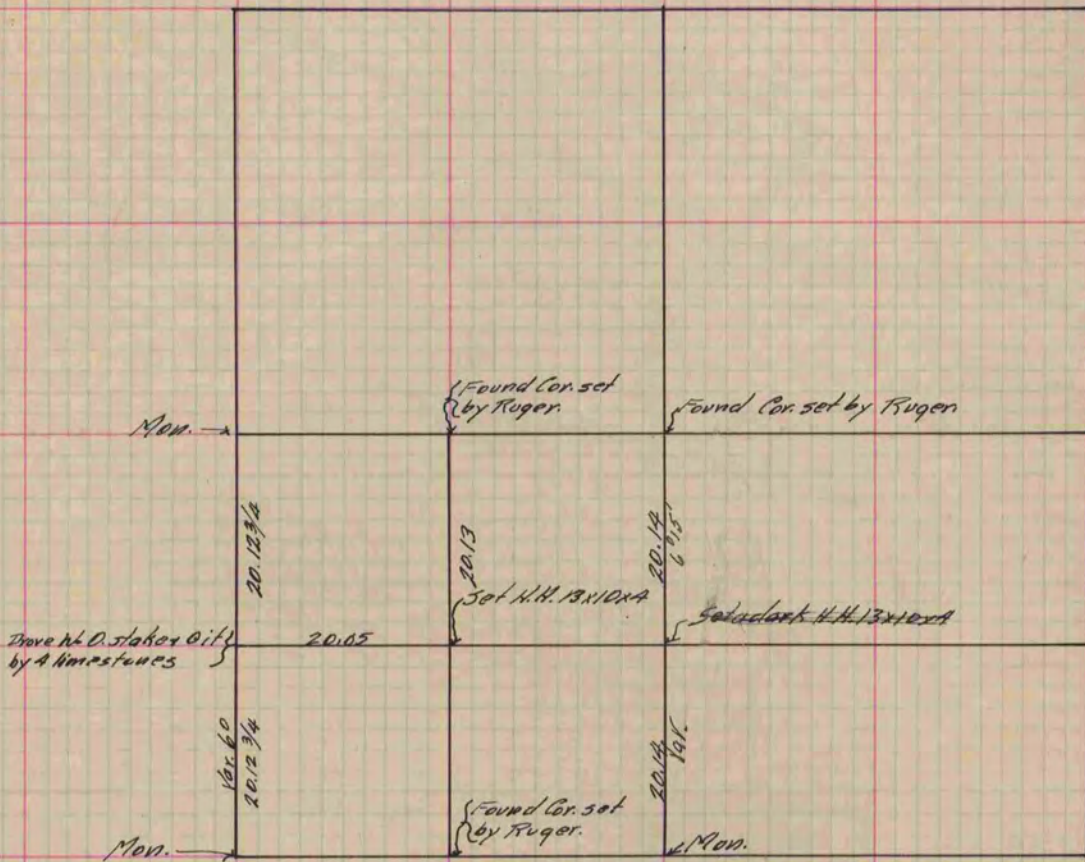 Found Cor. set
by Ruger.
Found Cor. set by Ruger
Mon.
20.12 3/4
20.13
20.14
6°15'
Set H.H. 13x10x4
Set a dark H.H. 13x10x4
Drove W.O. stake &
by 4 limestones
20.05
Var. 6°
20.12 3/4
20.14
Var.
Found Cor. set
by Ruger.
Mon.
Mon.